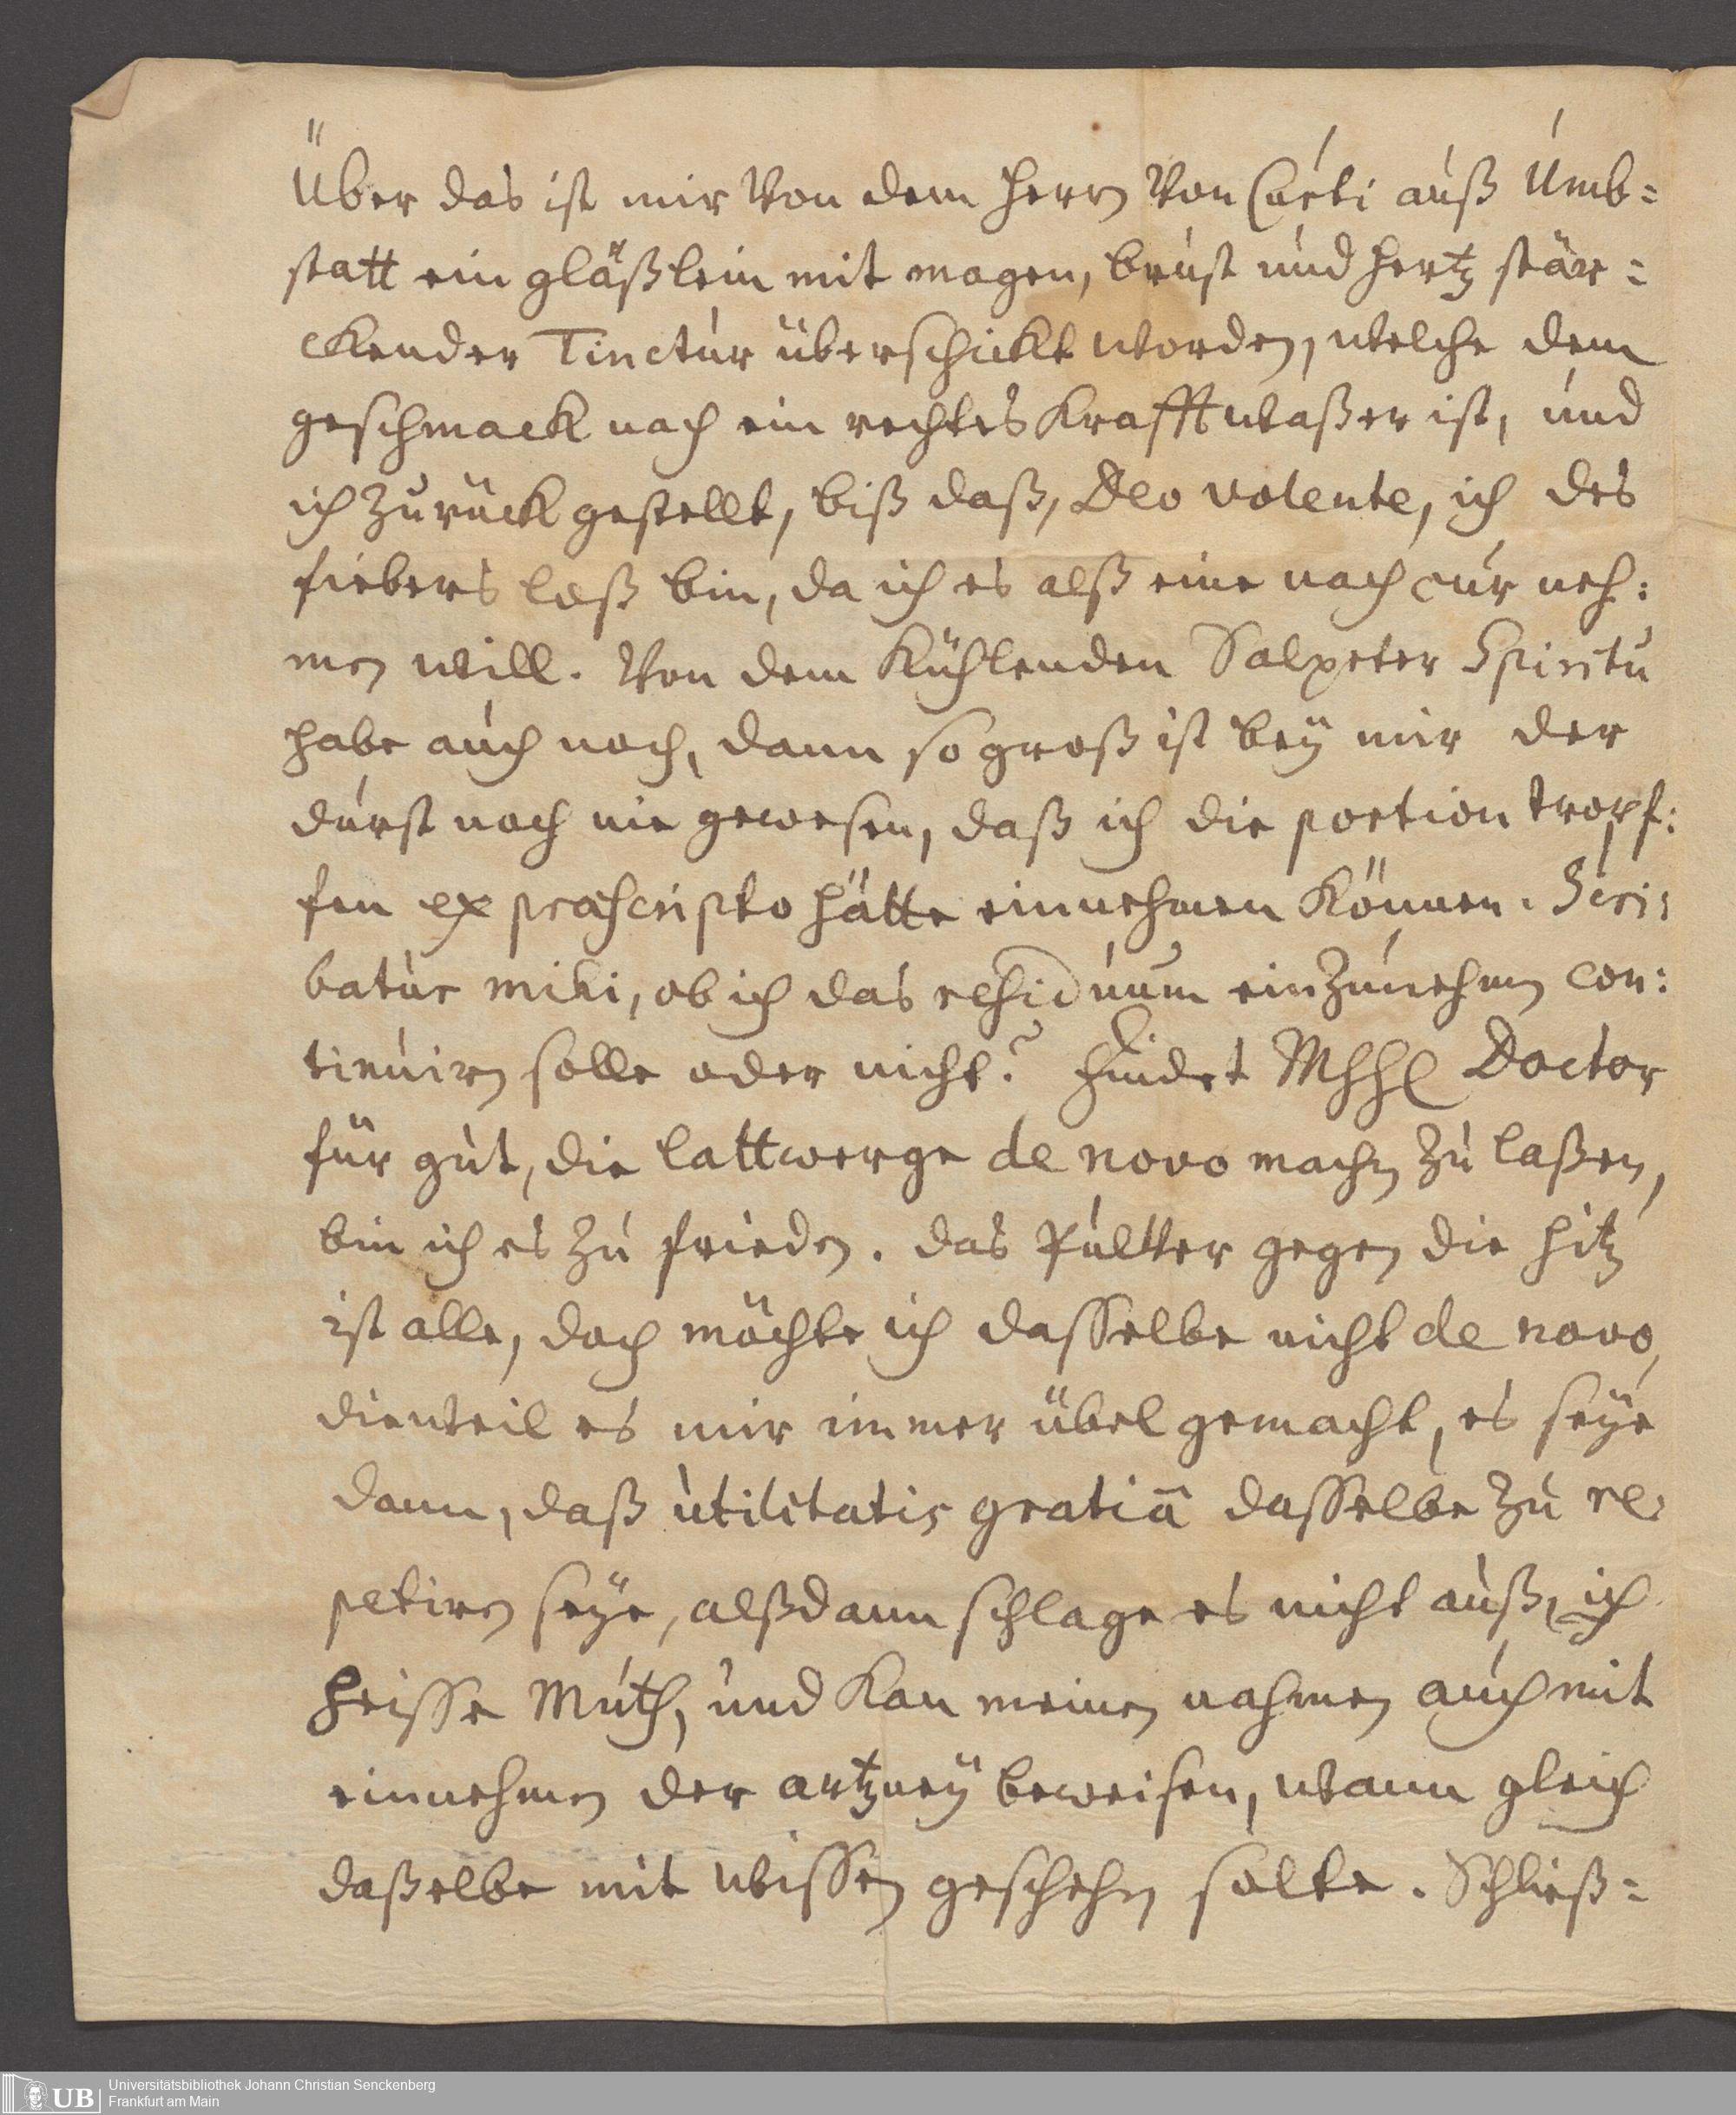 Über das ist mir von dem Herrn von Curti auß Umb=
statt ein gläßlein mit magen, brust und hertz stär=
ckender Tinctur überschickt worden, welche dem
geschmack nach ein rechtes Krafftwaßer ist, und
ich zurück gestellt, biß daß, Deo volente, ich des
fiebers loß bin, da ich es alß eine nach cur neh=
men will. Von dem Kühlenden Salpeter Spiritu
habe auch noch, dann so groß ist bey mir der
durst noch nie gewesen, daß ich die portion tropf=
fen ex praescripto hätte einnehmen können. Scri=
batur mihi, ob ich das residuum einzunehmen con=
tinuiren solle oder nicht? Findet MhhE Doctor
für gut, die lattwerge de novo machen zu laßen,
bin ich es zu frieden. das Pulver gegen die hitz
ist alle, doch möchte ich dasselbe nicht de novo,
dieweil es mir immer übel gemacht, es seye
dann, daß utilitatis gratiâ dasselbe zu re=
petiren seye, alßdann schlage es nicht auß, ich
heisse Muth, und kan meinen nahmen auch mit
einnehmen der artzney beweisen, wann gleich
daßelbe mit wissen geschehen solte. Schließ=
UB
Universitätsbibliothek Johann Christian Senckenberg
Frankfurt am Main